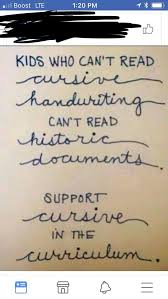 Boost LTE 1:20 PM
KIDS WHO CAN'T READ
cursive
handwriting
CAN'T READ
historic
documents.
SUPPORT
cursive
IN THE
curriculum.